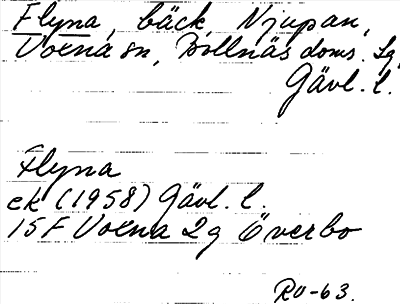 Flyna, bäck, Njupan,
Voxna sn, Bollnäs doms. lg,
Gävl. l.
Flyna
ek (1958) Gävl. l.
15F Voxna 2g Överbo
RU-63.